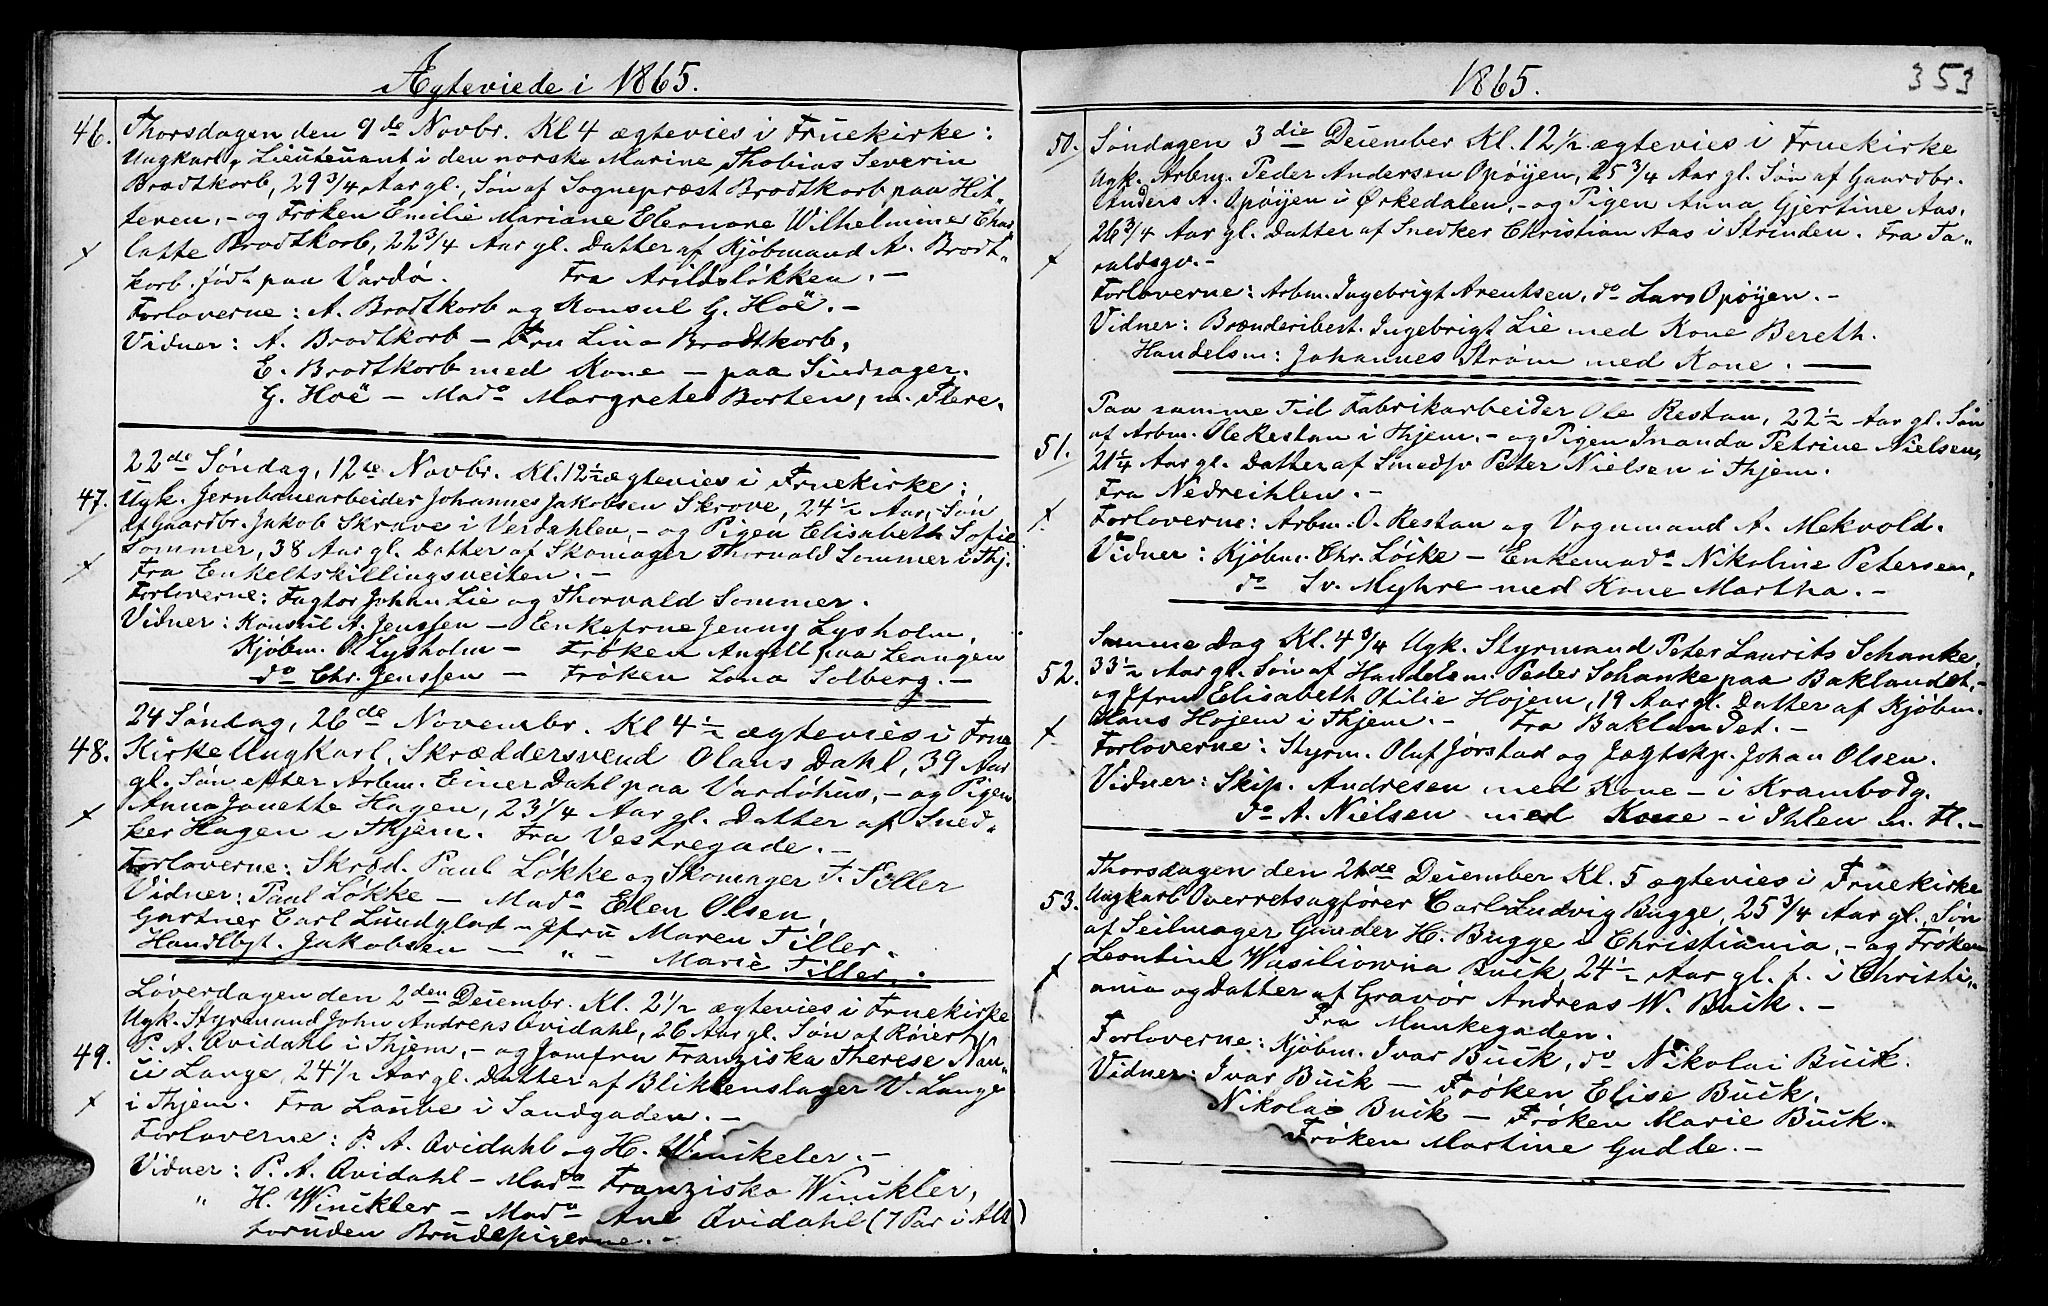 Ægteviede i 1865.
46. Thorsdagen den 9de Novbr. Kl 4 ægtevies i Fruekirke:
Ungkarl, Lieutenant i den norske Marine Thobias Severin
Brodtkorb, 29 3/4 Aar gl., Søn af Sognepræst Brodtkorb paa Hit-
teren, - og Frøken Emilie Mariane Eleonore Wilhelmine Char-
x lotte Brodtkorb, 22 3/4 Aar gl. Datter af Kjøbmand A. Brodt-
korb. fød paa Vardø. Fra Arildsløkken. -
Forloverne: A. Brodtkorb og Konsul G. Hoë. -
Vidner: A. Brodtkorb - Fru Lina Brodtkorb,
E. Brodtkorb med Kone - paa Sindsager.
G. Hoë - Mado Margrete Borten, m. Flere.
22de Søndag, 12te Novbr. Kl. 12 1/2 ægtevies i Fruekirke:
47. Ugk. Jernbanearbeider Johannes Jakobsen Skrove, 24 1/2 Aar, Søn
af Gaardbr. Jakob Skrove i Verdahlen, - og Pigen Elisabeth Sofie
x Sommer, 38 Aar gl. Datter af Skomager Thorvald Sommer i Thj.
Fra Enkeltskillingsveiten. -
Forloverne: Fagtor Johan Lie og Thorvald Sommer.
Vidner: Konsul A. Jenssen - Enkefrue Jenny Lysholm,
Kjøbm. O. Lysholm - Frøken Angell paa Leangen
do Chr. Jenssen - Frøken Lona Solberg. -
24 Søndag, 26de Novembr. Kl 4 1/2 ægtevies i Frue
48. Kirke Ungkarl, Skræddersvend Olaus Dahl, 39 Aar
gl. Søn efter Arbm. Einer Dahl paa Vardøhus, - og Pigen
x Anna Janette Hagen, 23 1/4 Aar gl. Datter af Sned-
ker Hagen i Thjem. Fra Vestregade. -
Forloverne: Skrød. Paul Løkke og Skomager F. Tiller
Vidner: Paul Løkke - Mado Elen Olsen,
Gartner Carl Lundglad - Jfru Maren Tiller.
Handlbgt. Jakobsen - " - Marie Tiller.
Løverdagen den 2den Deiembr. Kl. 2 1/2 ægtevies i Fruekirke
Ugk. Styrmand John Andreas Qvidahl, 26 Aar gl. Søn af Røiert
49. P. A. Qvidahl i Thjem, - og Jomfru Franziska Therese Nan-
ü Lange, 24 1/2 Aar gl. Datter af Blikkenslager V. Lange
x i Thjem. Fra Laube i Sandgaden. -
Forloverne: P. A. Qvidahl og H. Winikeler. -
Vidner: P. A. Qvidahl - Mado Franziska Winikler,
" H. Winikler - Mado Ane Qvidahl (7 Par i Alt)
foruden Brudepigerne. -
1865. 353
50. Søndagen 3die Deiember Kl. 12 1/2 ægtevies i Fruekirke
Ugk. Arbm. Peder Andersen Opøyen, 25 3/4 Aar gl. Søn af Gaardbr.
Anders A. Opøyen i Ørkedalen, - og Pigen Anna Gjertine Aas,
26 3/4 Aar gl. Datter af Snedker Christian Aas i Strinden. Fra Ta-
x raldsgv. -
Forloverne: Arbm. Ingebrigt Arentsen, do Lars Opøyen. -
Vidner: Brænderibest. Ingebrigt Lie med Kone Bereth.
Handelsm: Johannes Strøm med Kone. -
Paa samme Tid Fabrikarbeider Ole Restan, 22 1/2 Aar gl. Søn
51. af Arbm. Ole Restan i Thjem, - og Pigen Inanda Petrine Nielsen,
21 1/4 Aar gl. Datter af Smedsv Peter Nielsen i Thjem.
Fra Nedreihlen. -
x Forloverne: Arbm. O. Restan og Vognmand A. Mekvold.
Vidner: Kjøbm. Chr. Løike - Enkemado Nikoline Petersen,
do Sv. Myhre med Kone Martha. -
Samme Dag Kl. 4 3/4 Ugk. Styrmand Peter Laurits Schanke,
52. 33 1/2 Aar gl. Søn af Handelsm. Peder Schanke paa Baklandet, -
og Jfru Elisabeth Otilie Hojem, 19 Aar gl. Datter af Kjøbm.
x Hans Hojem i Thjem. - Fra Baklandet. -
Forloverne: Styrm. Oluf Jørstad og Jægtskp. Johan Olsen.
Vidner: Skip. Andresen med Kone - i Krambodg.
do A. Nielsen med Kone - i Ihlen m. Fl. -
Thorsdagen den 21de Deiember Kl. 5 ægtevies i Fruekirke
53. Ungkarl Overretsagfører Carl Ludvig Bugge, 25 3/4 Aar gl., Søn
af Seilmager Gunder H. Bugge i Christiania, - og Frøken
x Leontine Wasiliowna Buik 24 1/2 Aar gl. f. i Christi-
ania og Datter af Gravør Andreas W. Buik. -
Fra Munkegaden.
Forloverne: Kjøbm. Ivar Buik, do Nikolai Buik.
Vidner: Ivar Buik - Frøken Elise Buik.
Nikolai Buik - Frøken Marie Buik.
Frøken Martine Gudde. -